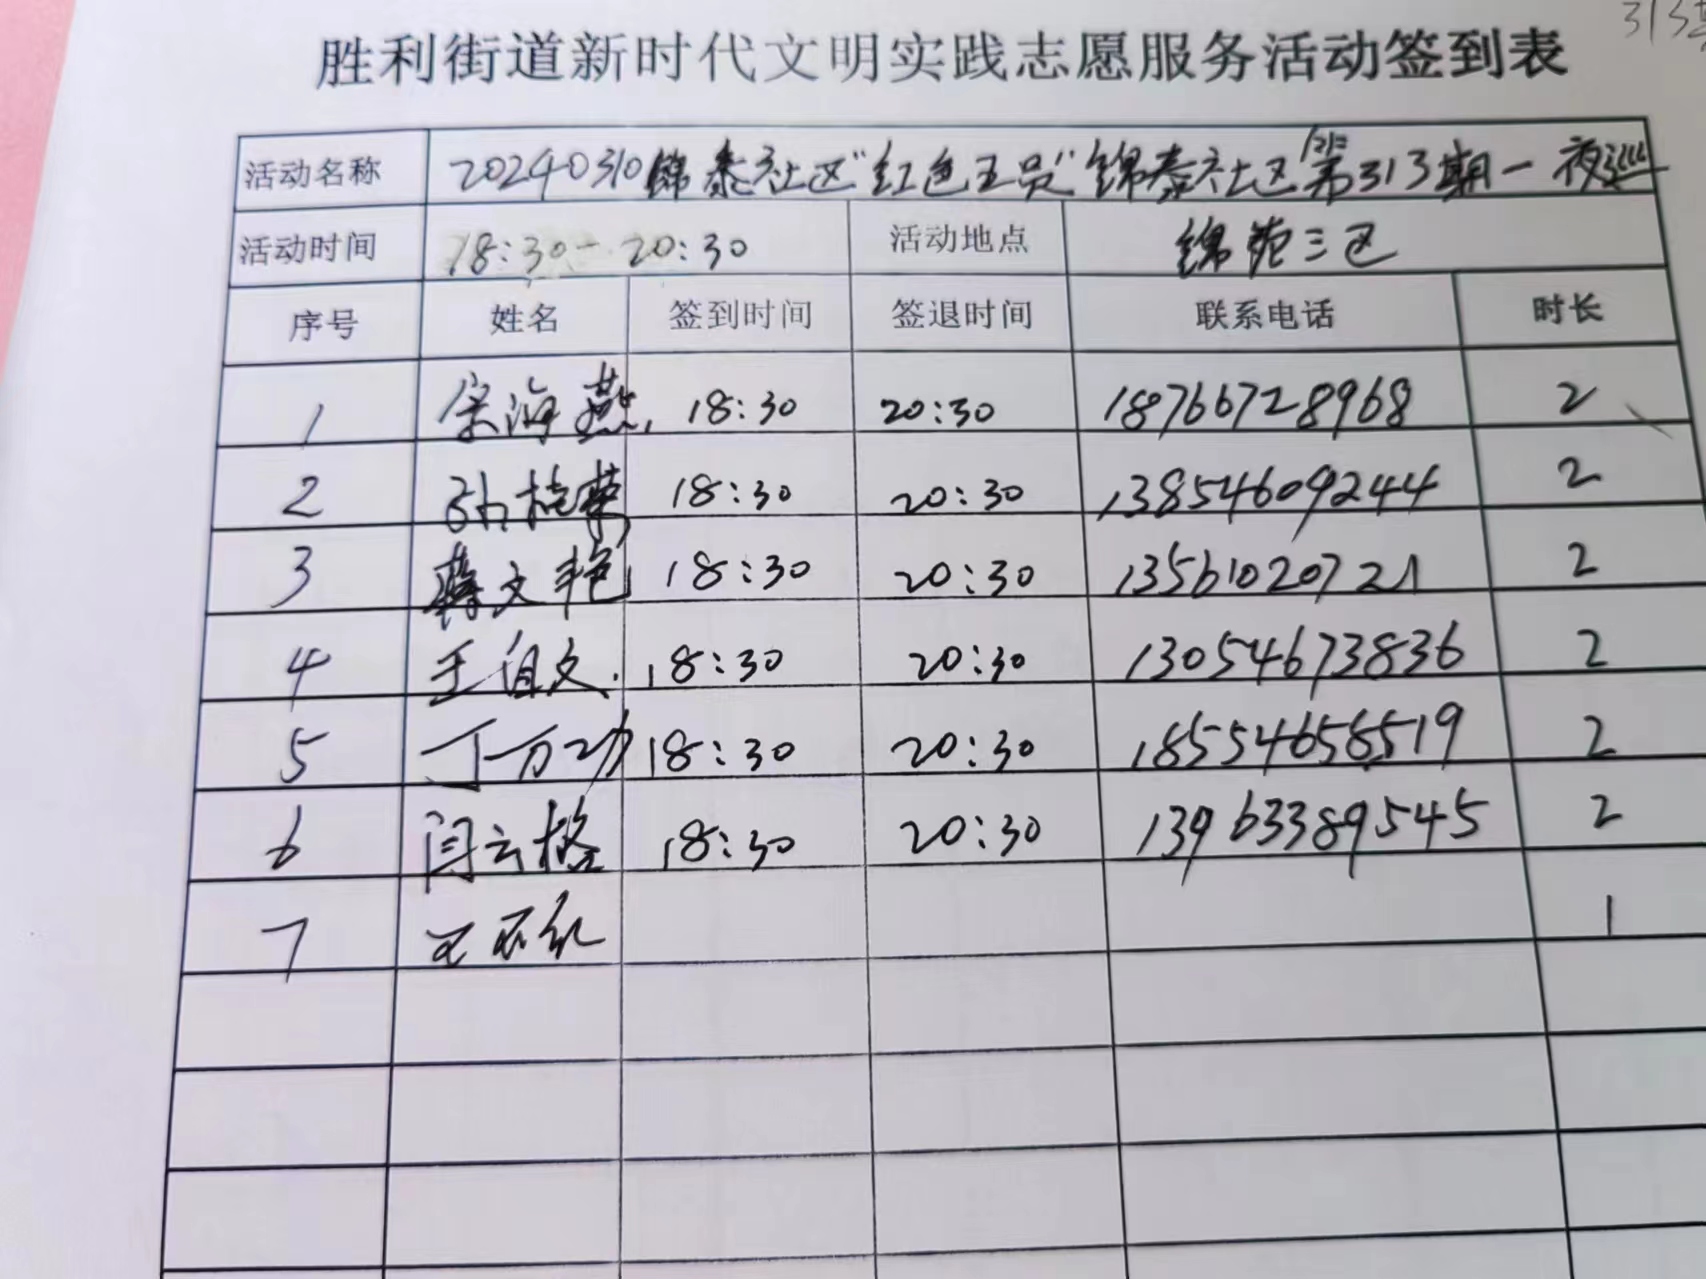 313
胜利街道新时代文明实践志愿服务活动签到表
活动名称 20240310锦泰社区"红色五员"锦泰社区第313期一夜巡
活动时间 18:30-20:30 活动地点 锦苑三区
序号 姓名 签到时间 签退时间 联系电话 时长
1 宗海燕 18:30 20:30 18766728968 2
2 孙桂荣 18:30 20:30 13854609244 2
3 蒋文艳 18:30 20:30 13561020721 2
4 王自文 18:30 20:30 13054673836 2
5 丁万功 18:30 20:30 18554658519 2
6 闫云格 18:30 20:30 13963389545 2
7 1